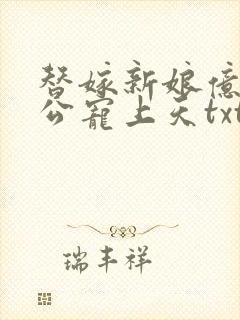 替嫁新娘億
公寵上天txt
瑞丰祥